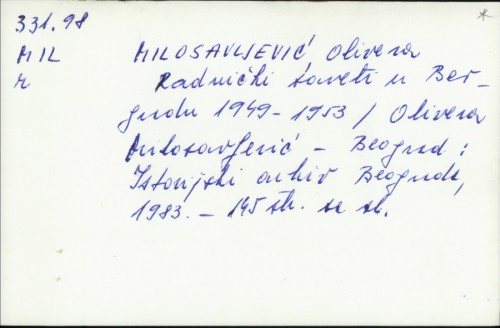 *
331.98
MIL MILOSAVLJEVIĆ Olivera
r Radnički saveti u Beo-
gradu 1949-1953 / Olivera
Milosavljević - Beograd :
Istorijski arhiv Beograda,
1983. - 145 str. sa sl.